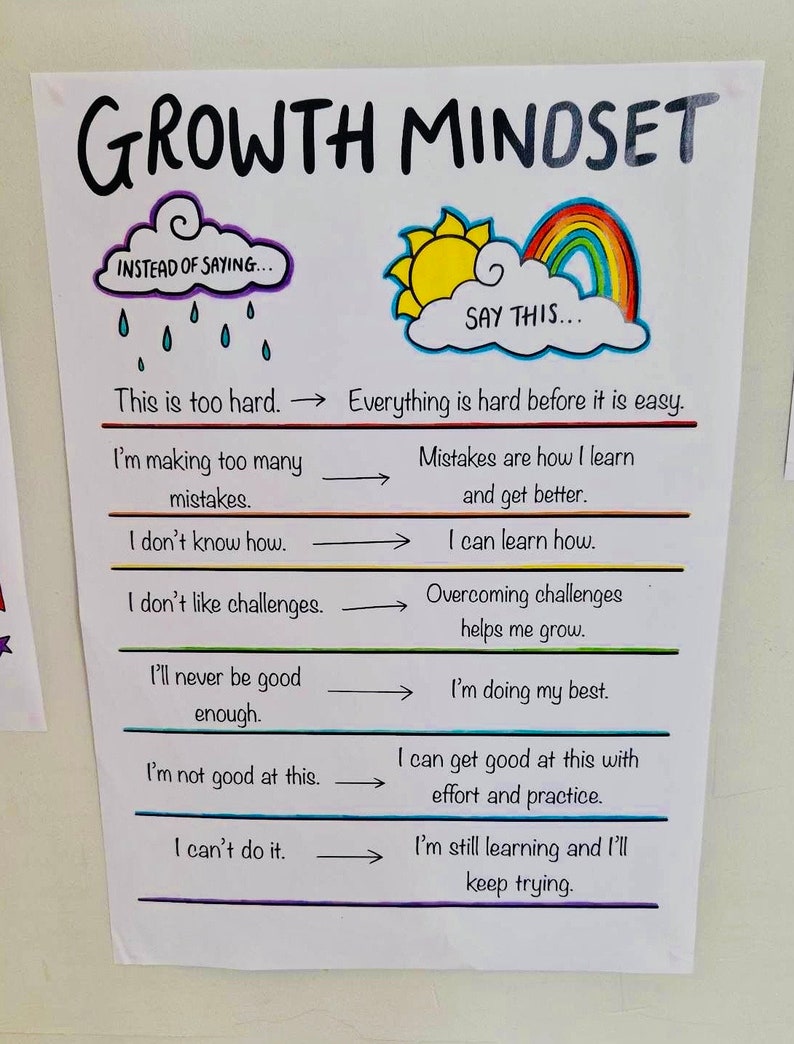 GROWTH MINDSET
INSTEAD OF SAYING...
SAY THIS...
This is too hard. → Everything is hard before it is easy.
I'm making too many
mistakes.
→
Mistakes are how I learn
and get better.
I don't know how. → I can learn how.
I don't like challenges. →
Overcoming challenges
helps me grow.
I'll never be good
enough.
→
I'm doing my best.
I'm not good at this. →
I can get good at this with
effort and practice.
I can't do it. →
I'm still learning and I'll
keep trying.